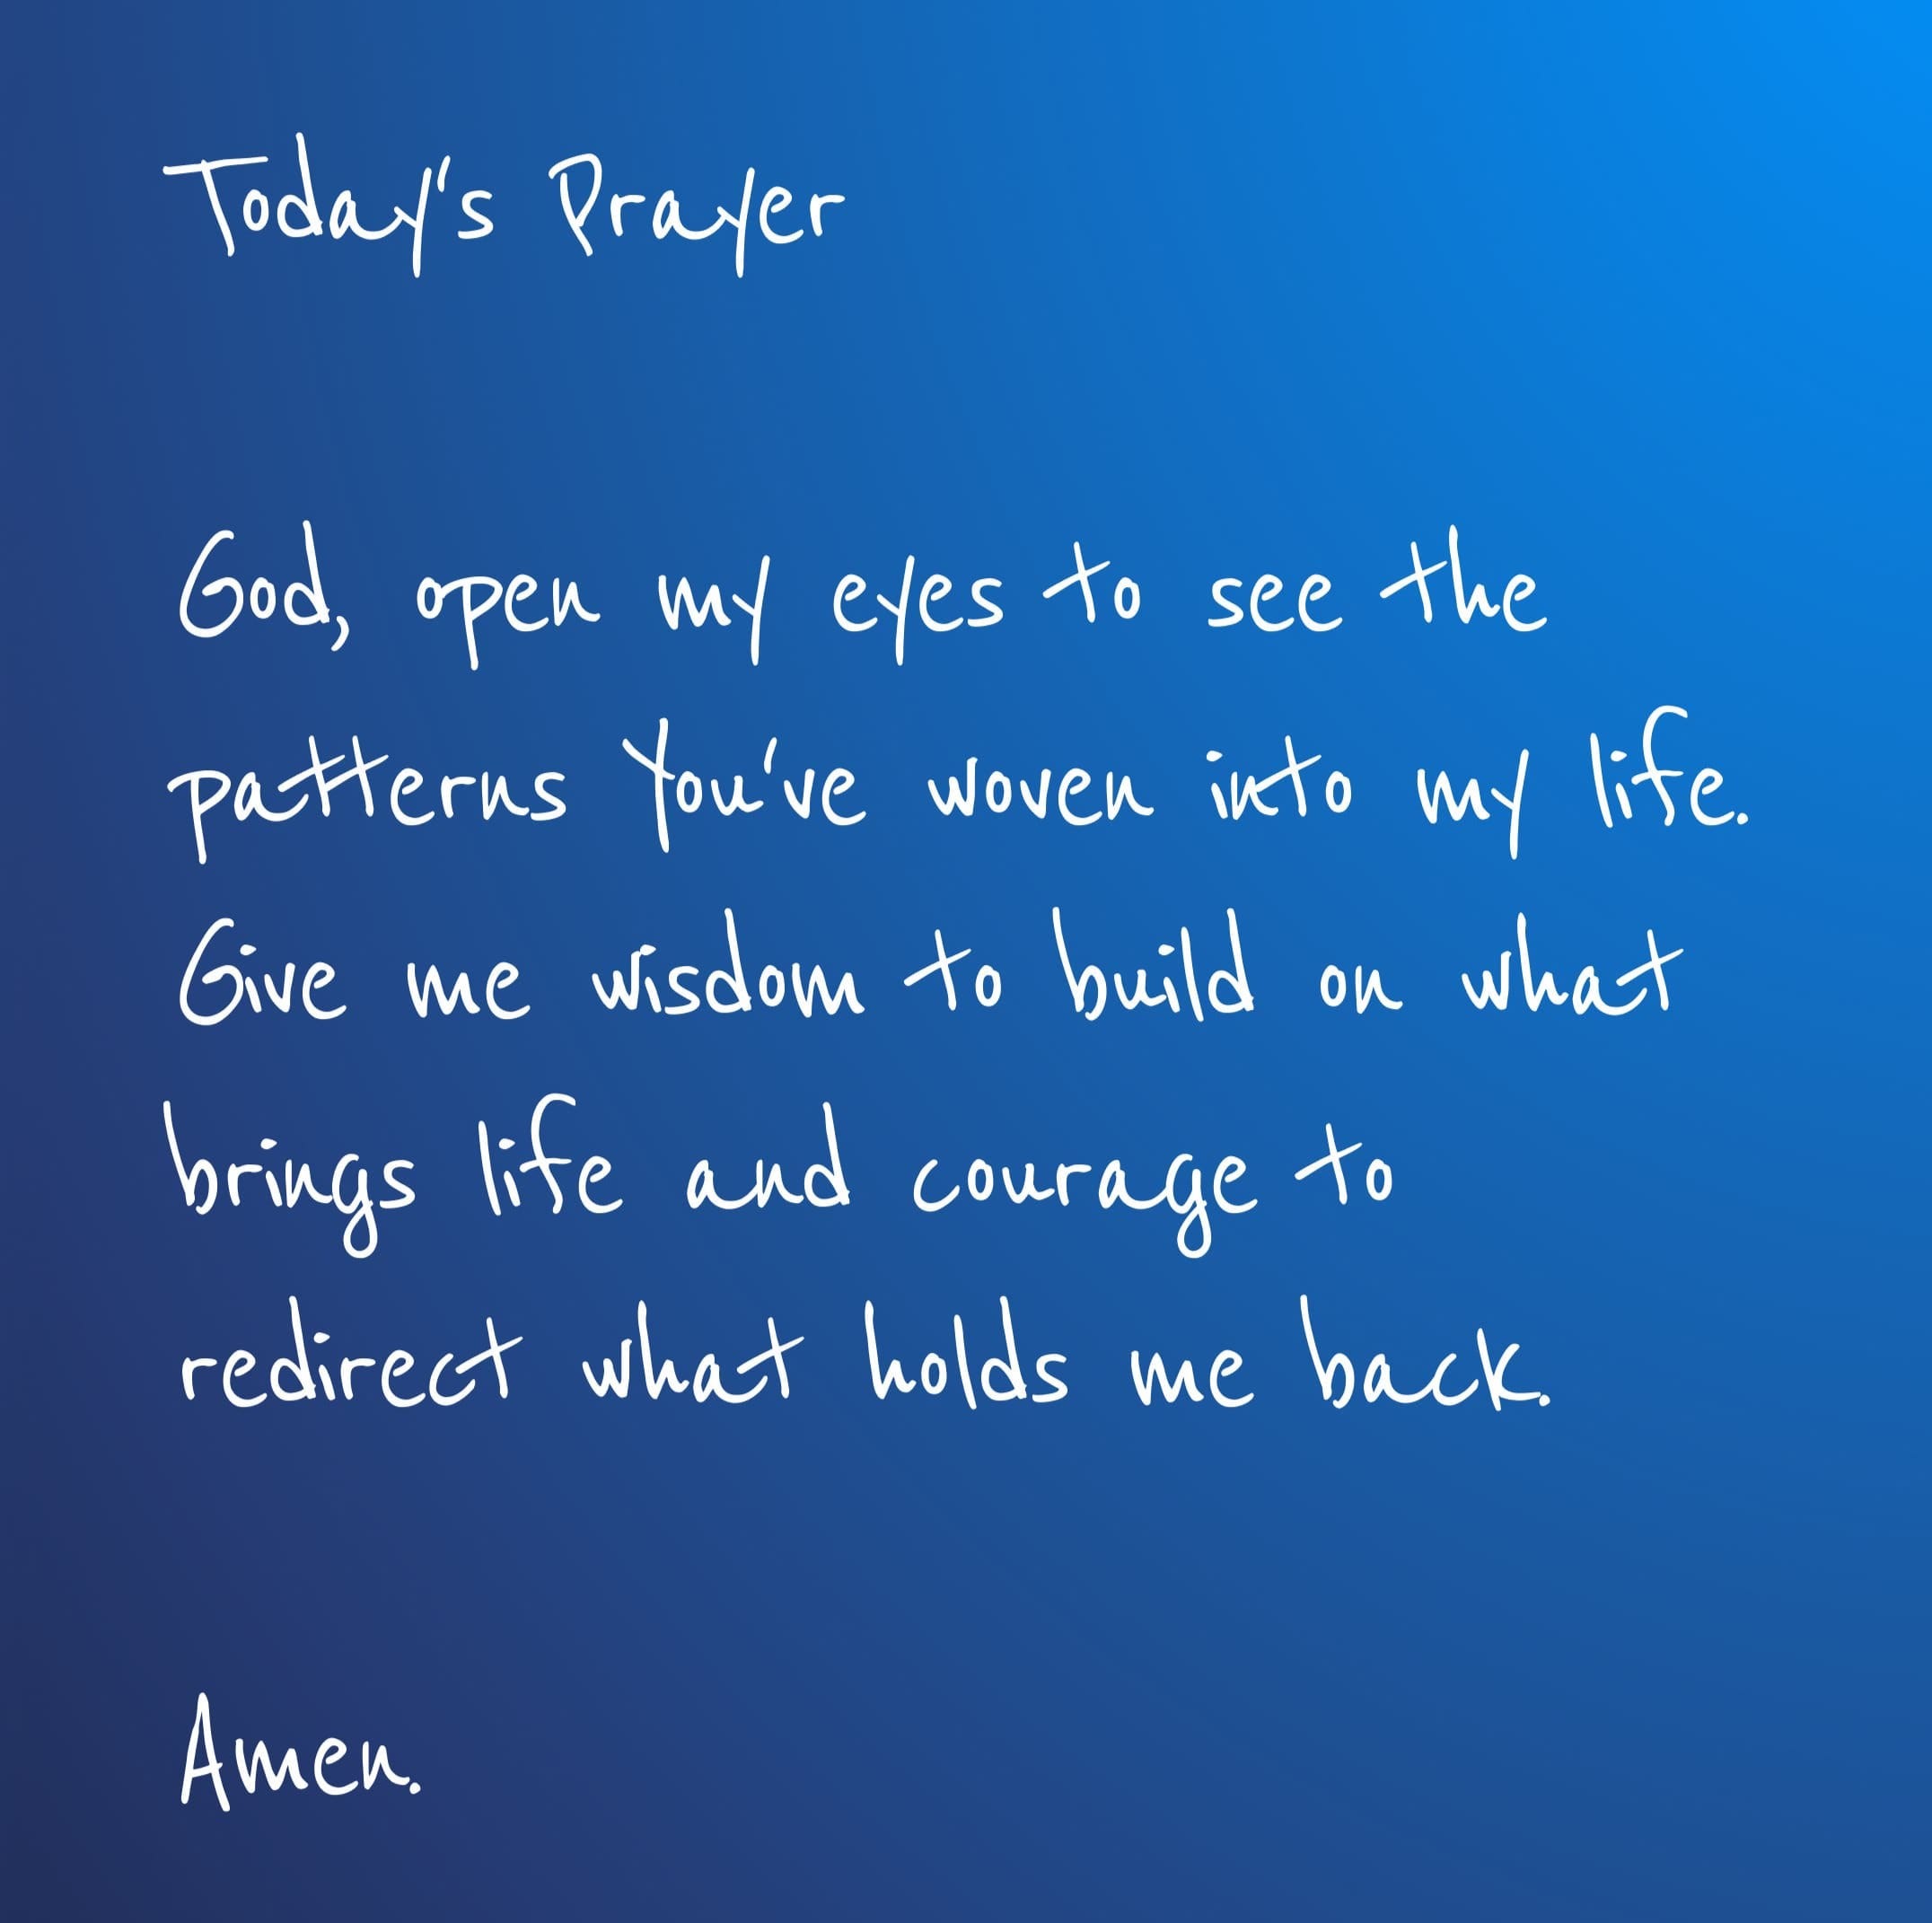 Today's Prayer
God, open my eyes to see the
patterns You've woven into my life.
Give me wisdom to build on what
brings life and courage to
redirect what holds me back.
Amen.